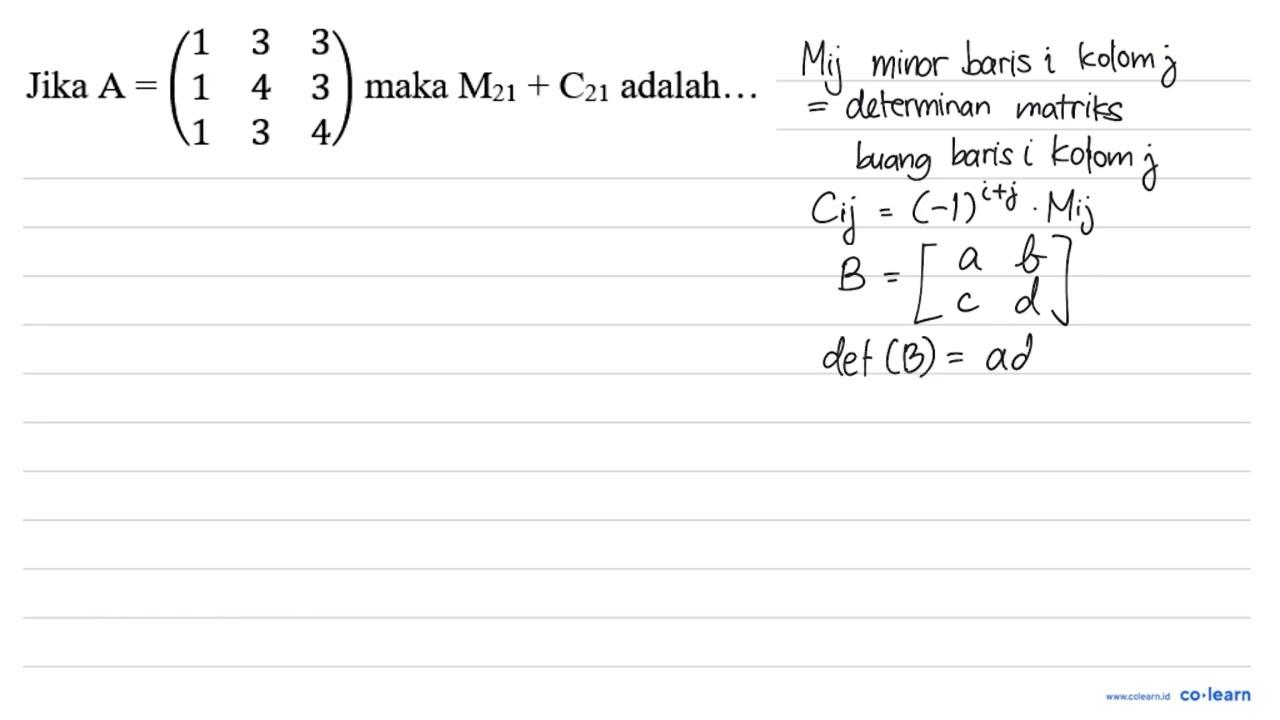 Jika A = (1 3 3
1 4 3
1 3 4) maka M₂₁ + C₂₁ adalah...
Mij minor baris i kolom j
= determinan matriks
buang baris i kolom j
Cij = (-1)^(i+j) . Mij
B = [a b
c d]
det (B) = ad
www.colearn.id co·learn